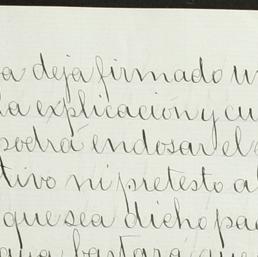 a deja firmado u
la explicacion y cu
podrá endosar el
tivo ni pretesto a
que sea dicho pa
bastará que